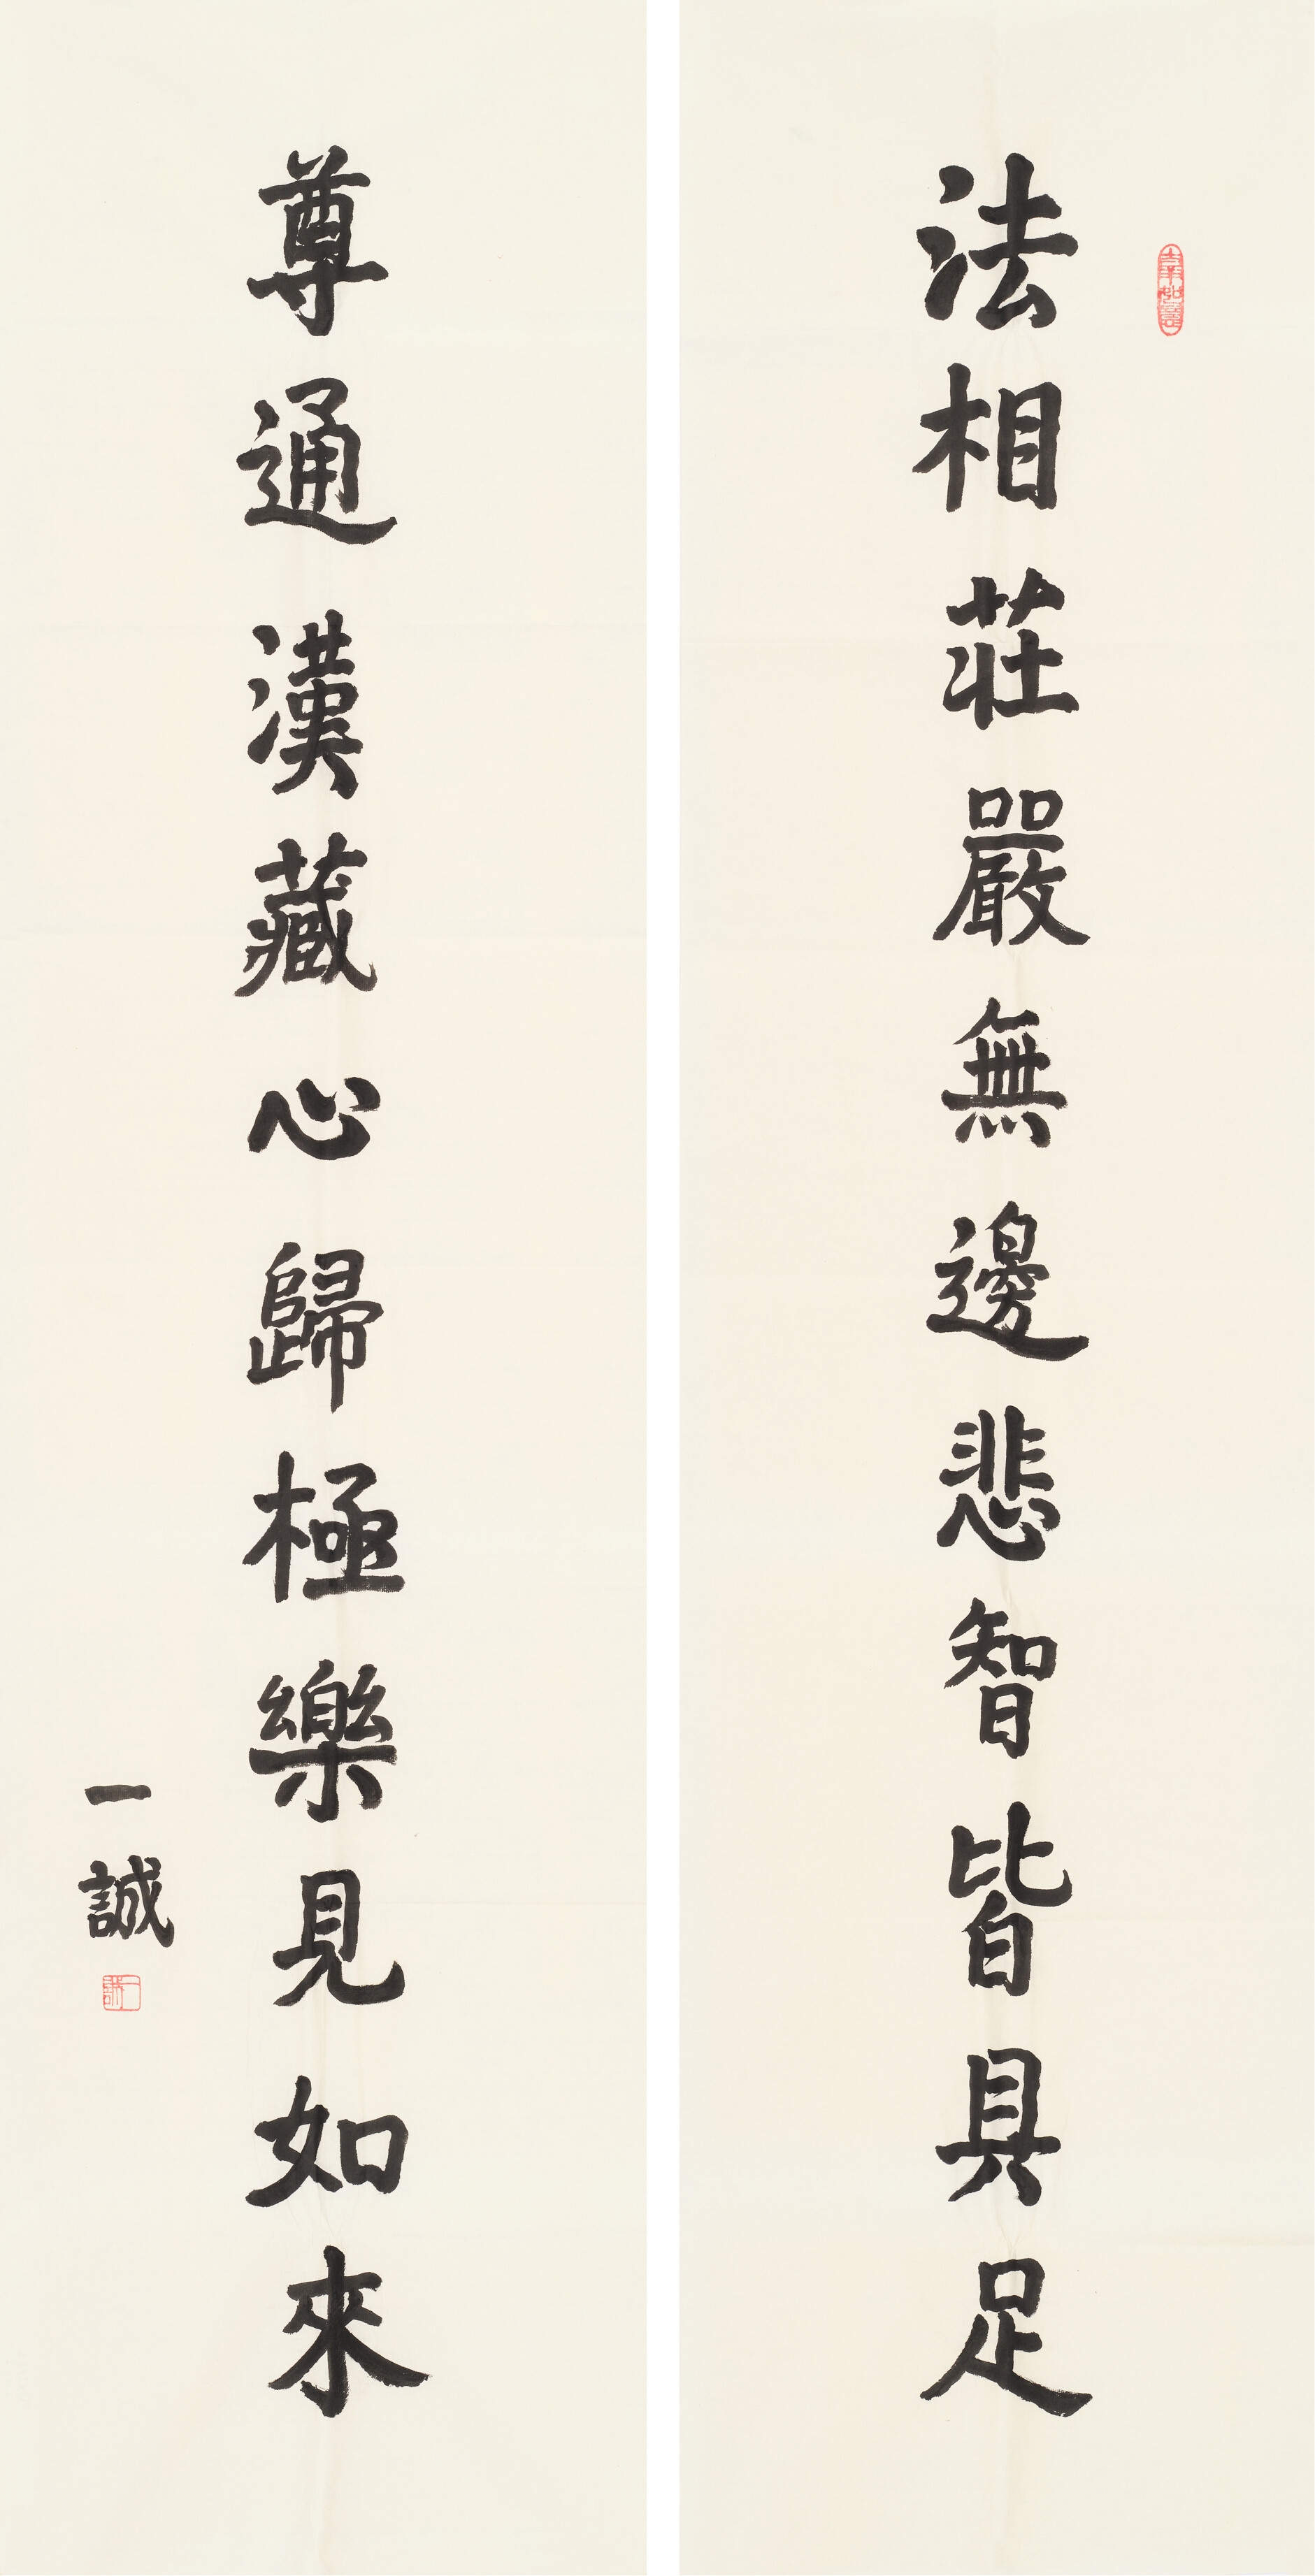 法相莊嚴無邊悲智皆具足
尊通漢藏心歸極樂見如來
一誠
吉羊如意
一誠